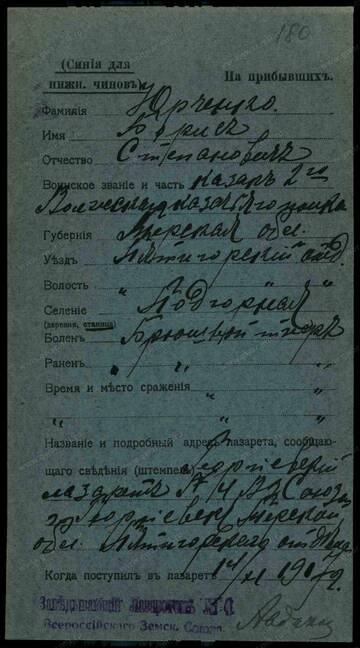 180
(Синія для
нижн. чиновъ)
На прибывшихъ.
Фамилія Юрченко.
Имя Борисъ
Отчество Степановичъ
Воинское званіе и часть казакъ 2го
Волжскаго казачьяго полка
Губернія Терская обл.
Уѣздъ Пятигорскій отд.
Волость " " "
Селеніе Подгорная
(деревня, станица)
Боленъ Брюшной тифъ
Раненъ " " "
Время и мѣсто сраженія " "
" " "
Названіе и подробный адресъ лазарета, сообщаю-
щаго свѣдѣнія (штемпель) Георгіевскій
лазаретъ № 4 Союза
г. Георгіевскъ Терской
обл. Пятигорскаго отдѣла
Когда поступилъ въ лазаретъ 14/II 191 г.
Завѣдывающій Лазаретомъ №
Всероссійскаго Земск. Союза.